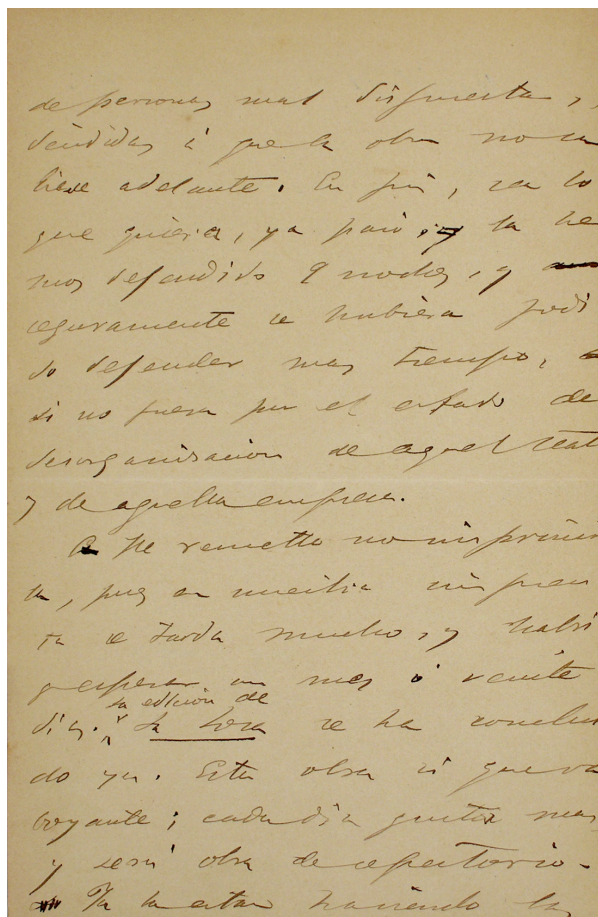 de personas mal dispuestas,
decididas á que la obra no sa
liese adelante. En fin, sea lo
que quiera, ya pasó, y la he
mos defendido 9 noches, y
seguramente se hubiera podi
do defender mas tiempo,
si no fuera por el estado de
desorganisacion de aquel teat
y de aquella empresa.
He resuelto no imprimir
la, pues en nuestra impren
ta se tarda mucho, y habrá
q esperar un mes ó veinte
dias. Y la edición de La loca se ha conclui
do ya. Esta obra si que va
boyante; cada dia gusta mas
y será obra de repertorio.
Ya la estan haciendo la